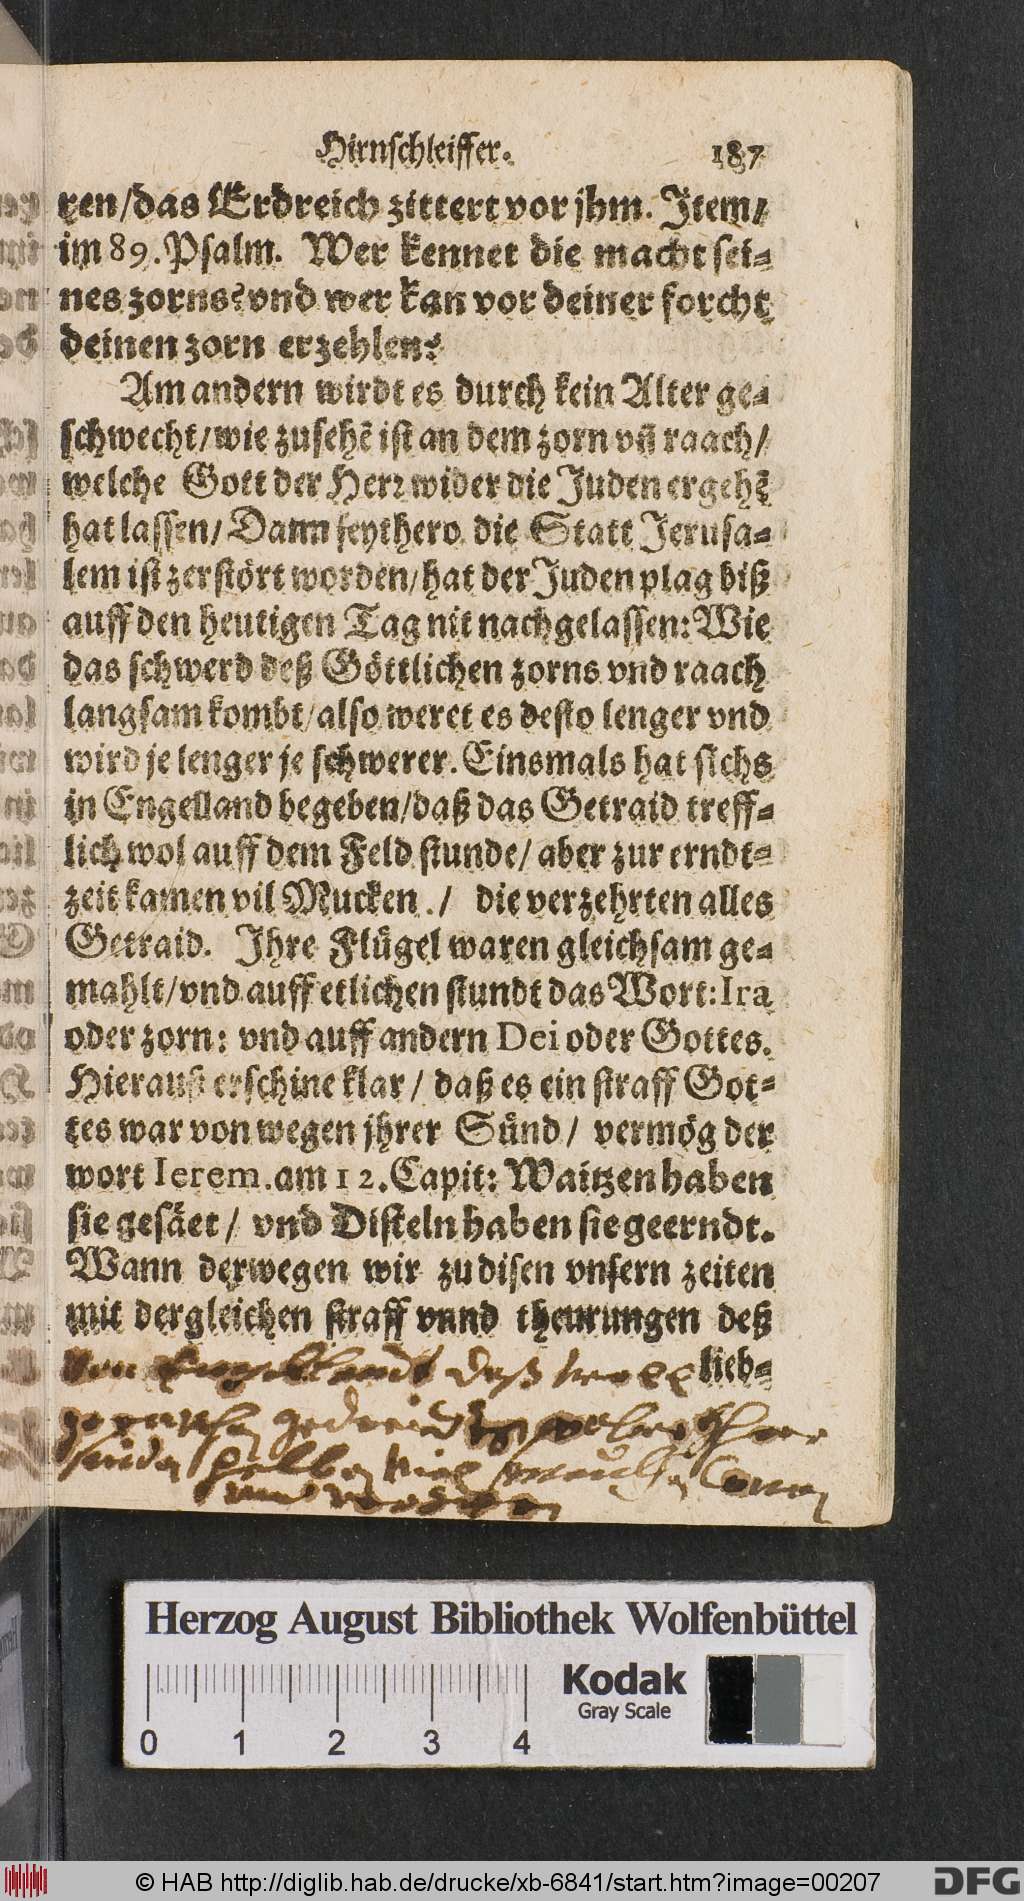 Hirnschleiffer. 187
ren/das Erdreich zittert vor jhm. Item/
im 89. Psalm. Wer kennet die macht sei-
nes zorns? vnd wer kan vor deiner forcht
deinen zorn erzehlen?
Am andern wirdt es durch kein Alter ge-
schwecht/wie zusehẽ ist an dem zorn vñ raach/
welche Gott der Herr wider die Juden ergehẽ
hat lassen/ Dann seythero die Statt Jerusa-
lem ist zerstört worden/hat der Juden plag biß
auff den heutigen Tag nit nachgelassen: Wie
das schwerd deß Göttlichen zorns vnd raach
langsam kombt/also weret es desto lenger vnd
wird je lenger je schwerer. Einsmals hat sichs
in Engelland begeben/daß das Getraid treff-
lich wol auff dem Feld stunde/ aber zur erndt-
zeit kamen vil Mucken./ die verzehrten alles
Getraid. Ihre Flügel waren gleichsam ge-
mahlt/vnd auff etlichen stundt das Wort: Ira
oder zorn: vnd auff andern Dei oder Gottes.
Hierauß erschine klar/ daß es ein straff Got-
tes war von wegen jhrer Sünd/ vermög der
wort Ierem. am 12. Capit: Waitzen haben
sie gesäet/ vnd Disteln haben sie geerndt.
Wann derwegen wir zu disen vnsern zeiten
mit dergleichen straff vnnd theurungen deß
lieb-
von Engellandt daß
Herzog August Bibliothek Wolfenbüttel
Kodak
Gray Scale
0 1 2 3 4
© HAB http://diglib.hab.de/drucke/xb-6841/start.htm?image=00207
DFG